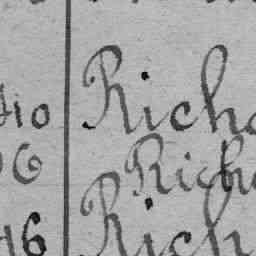 410 Richa
06 Richa
16 Rich